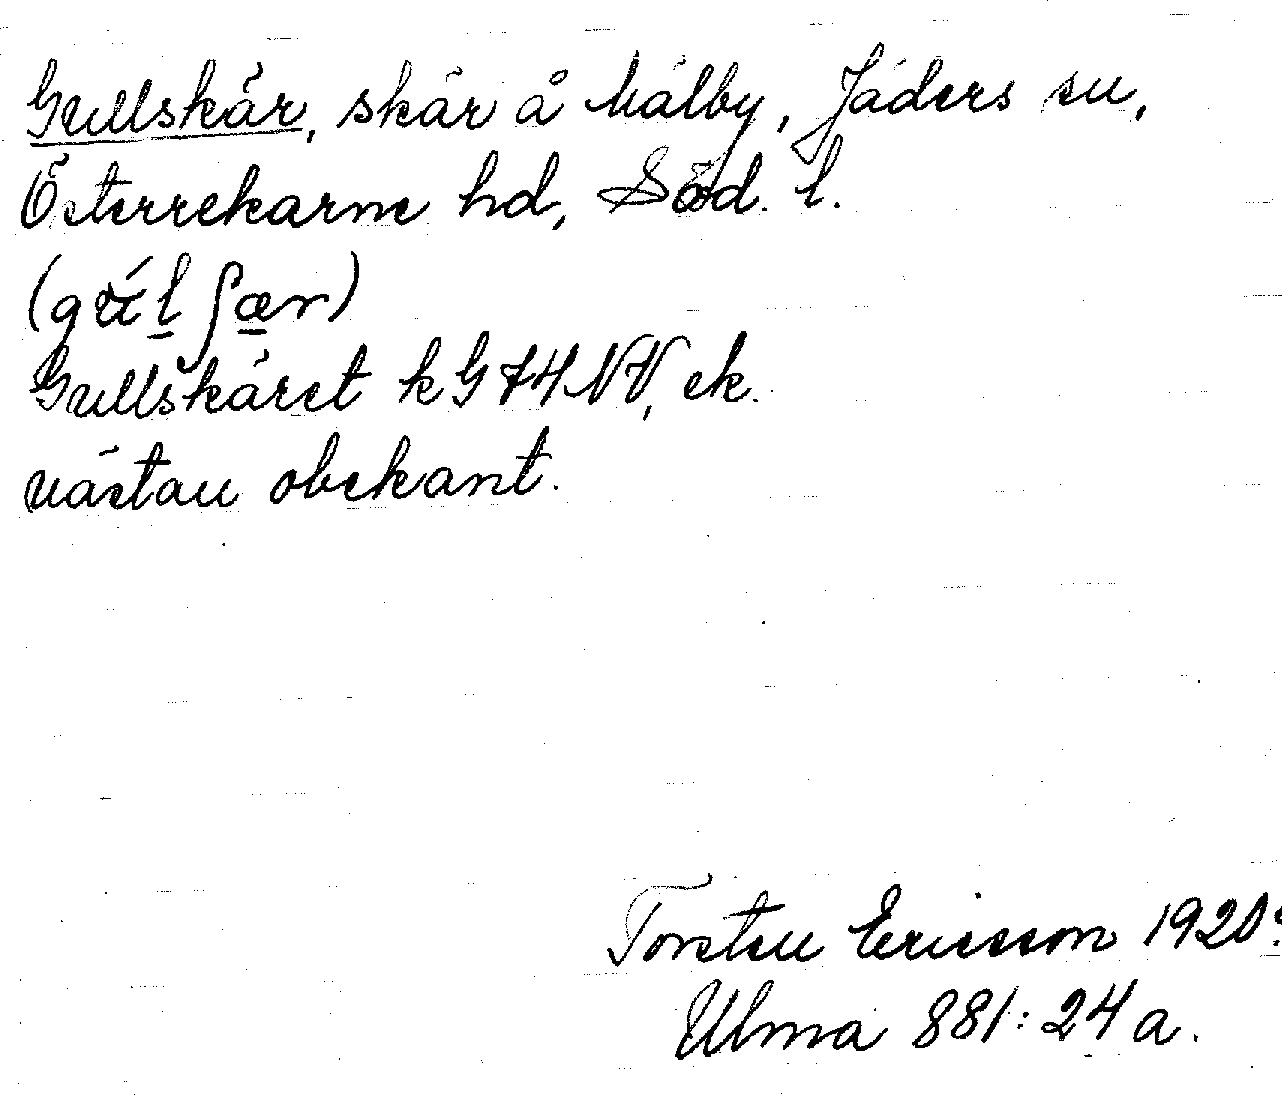 Gullskär, skär å Målby, Jäders sn,
Österrekarne hd, Söd. l.
(gúl ʃær)
Gullskäret k G 74 NV, ek.
nästan obekant.
Torsten Ericsson 1920?
Ulma 881:24 a.